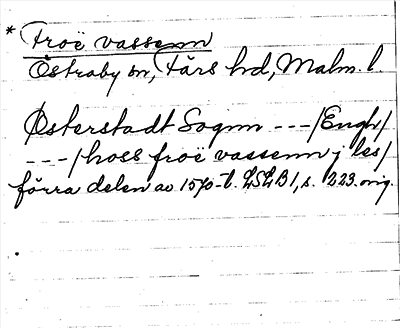 * Froë vassenn
Östraby sn, Färs hd, Malm. l.
Østerstadt Sognn ---/Engh/
---/hoss froë vassenn j les/
förra delen av 1570-t. LSLB 1, s. 223. orig.